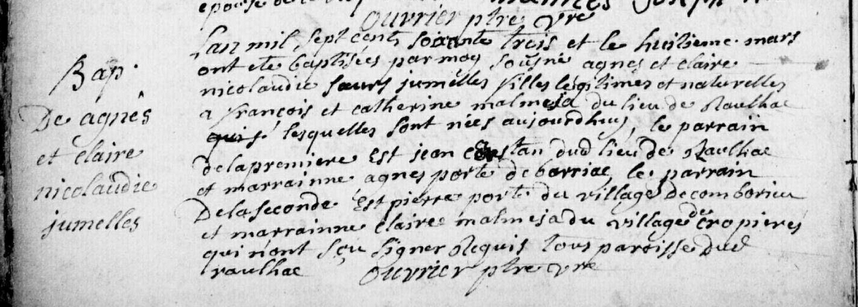 ouvrier ptre vre
Bap.
De agnès
et claire
nicolaudie
jumelles
L'an mil sept cents soixante trois et le huitieme mars
ont ete baptisées par moy sousné agnes et claire
nicolaudie sœurs jumelles filles légitimes et naturelles
a françois et catherine malmeja du lieu de Raulhac
lesquelles sont nées aujourdhuy, le parrain
de la premiere est jean dud lieu de Raulhac
et marrainne agnes porte de barriac, le parrain
De la seconde est pierre porte du village de comborieu
et marrainne claire malmeja du village de cropieres
qui n'ont sçu signer Requis tous paroisse Dud
raulhac ouvrier ptre vre